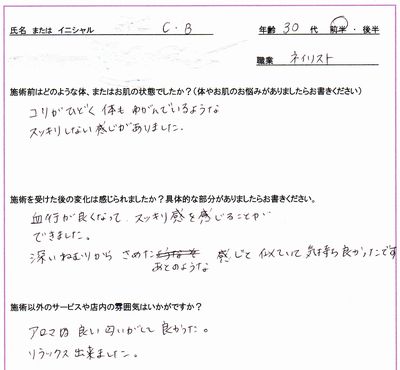 氏名 または イニシャル C・B 年齢 30 代 前半・後半
職業 ネイリスト
施術前はどのような体、またはお肌の状態でしたか？（体やお肌のお悩みがありましたらお書きください）
コリがひどく 体も ゆがんでいるような
スッキリしない 感じがありました.
施術を受けた後の変化は感じられましたか？具体的な部分がありましたらお書きください。
血行が良くなって スッキリ感を感じることが
できました。
深いねむりから さめた 感じと 似ていて 気持ち良かったです
あとのような
施術以外のサービスや店内の雰囲気はいかがですか？
アロマの 良い匂いがして 良かった。
リラックス出来ました。